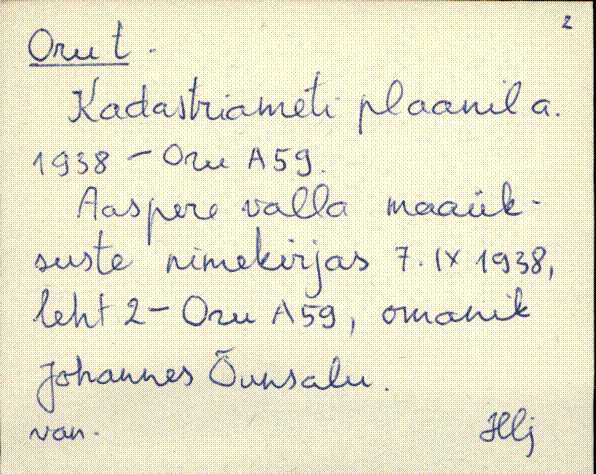 2
Oru t.
Kadastriameti plaanil a.
1938 – Oru A59.
Aaspere valla maaük-
suste nimekirjas 7. IX 1938,
leht 2 – Oru A59, omanik
Johannes Õunsalu.
van. Hlj